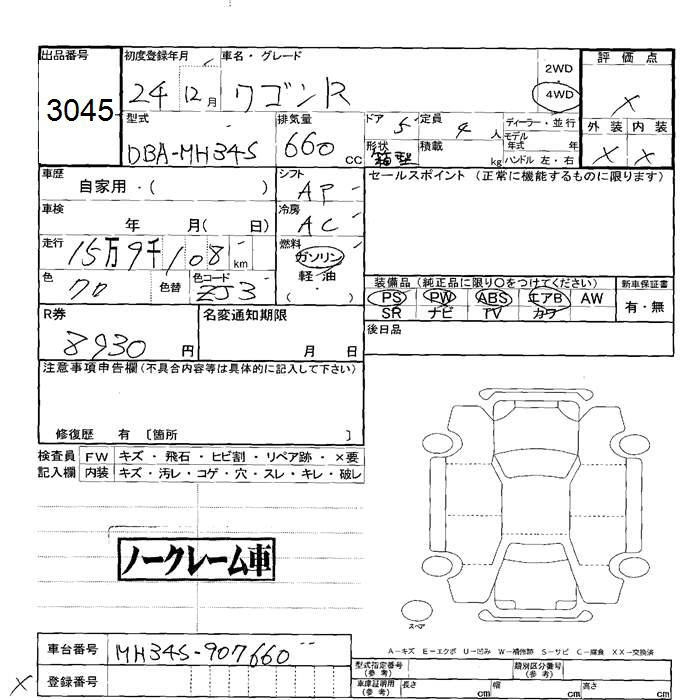 出品番号
3045
初度登録年月
24 12月
車名・グレード
ワゴンR
2WD
4WD
評価点
X
外装 内装
X X
型式
DBA-MH34S
排気量
660 cc
ドア 5
定員 4 人
形状 箱型
積載 kg
ディーラー・並行
モデル年式 年
ハンドル 左・右
車歴
自家用・( )
シフト
AP
セールスポイント (正常に機能するものに限ります)
車検
年 月( 日)
冷房
AC
走行
15万9千108 km
燃料
ガソリン
軽・油
( ・ )
色
クロ
色替
色コード
ZJ3
装備品 (純正品に限り○をつけてください)
PS PW ABS エアB AW
SR ナビ TV カワ
新車保証書
有・無
R券
8930 円
名変通知期限
月 日
後日品
注意事項申告欄 (不具合内容等は具体的に記入して下さい)
修復歴 有 〔箇所 〕
検査員 FW キズ・飛石・ヒビ割・リペア跡・×要
記入欄 内装 キズ・汚レ・コゲ・穴・スレ・キレ・破レ
ノークレーム車
スペア
A−キズ E−エクボ U−凹み W−補修跡 S−サビ C−腐食 XX−交換済
車台番号
MH34S-907660
X 登録番号
型式指定番号 (参考)
類別区分番号 (参考)
車庫証明用 (参考) 長さ cm 幅 cm 高さ cm